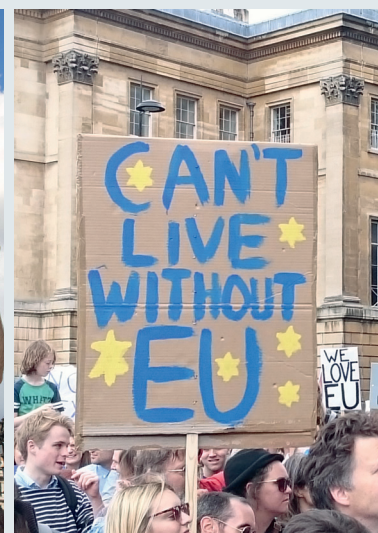 CAN'T
LIVE
WITHOUT
EU
WE
LOVE
EU